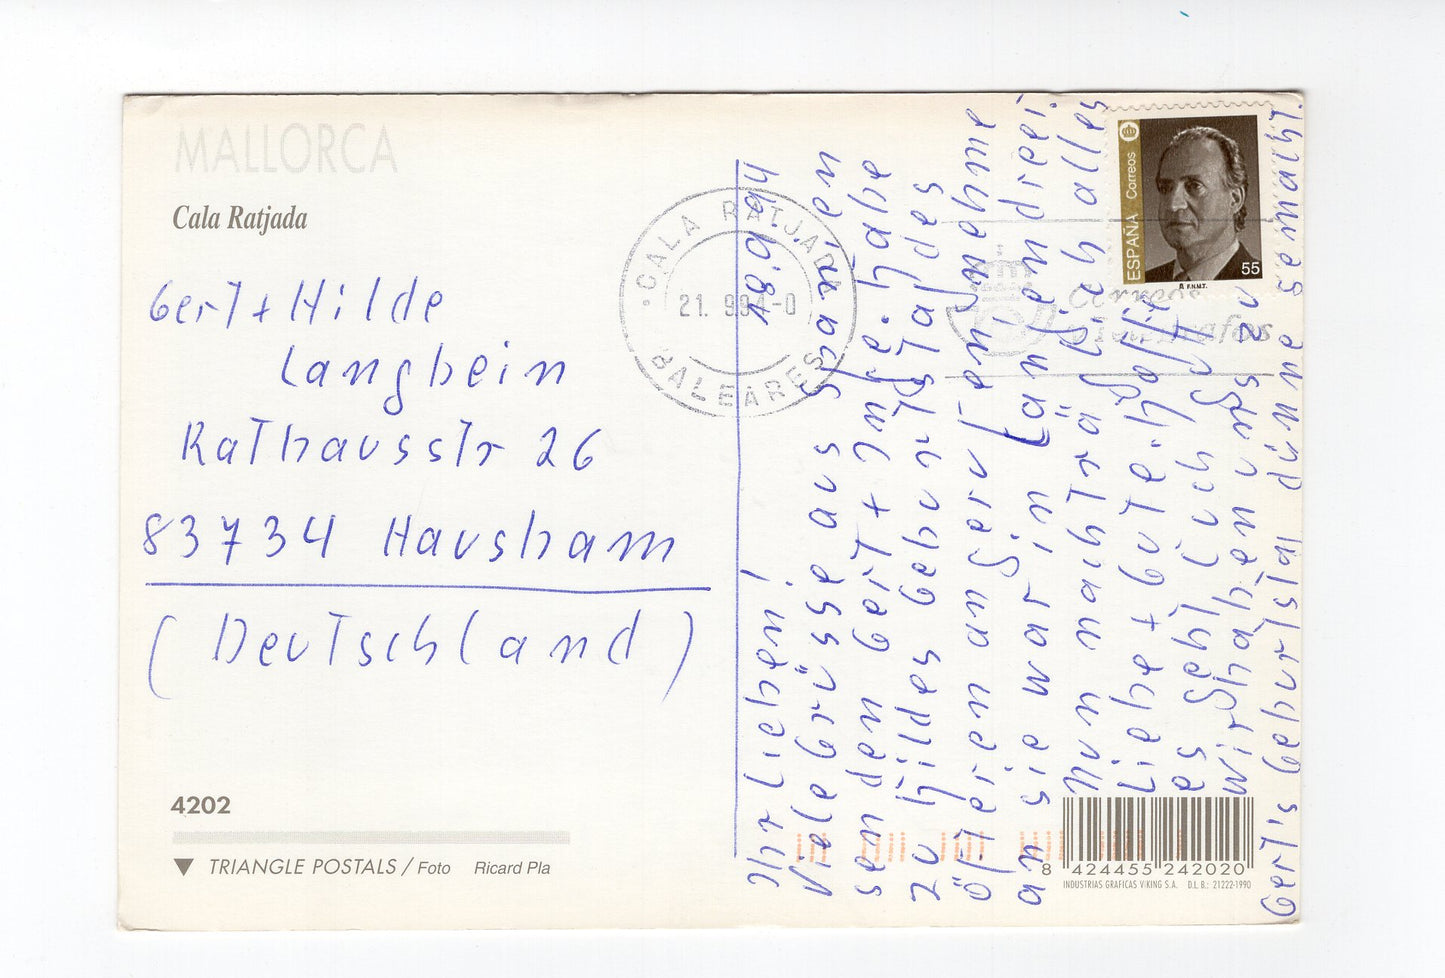 MALLORCA
Cala Ratjada
Gert + Hilde
Langbein
Rathausstr 26
83734 Hausham
(Deutschland)
4202
TRIANGLE POSTALS / Foto Ricard Pla
CALA RATJADA
21. 9.94-0
BALEARES
ESPAÑA Correos
55
F.N.M.T.
18.9.94
Ihr Lieben!
Viele Grüsse aus Spanien
senden Gert + Inge. habe
zu Hildes Geburtstag des
öfteren angeru
an sie war in
Nun nachträglich alles
Liebe + Gute. hoffe
es geht Euch gut
wir haben uns zu
Gert's Geburtstag dünne gemacht.
8 424455 242020
INDUSTRIAS GRAFICAS VIKING S.A. D.L.B.: 21222-1990